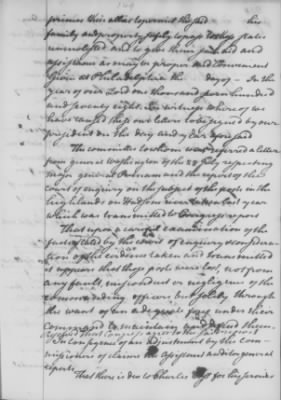 169
premises their allies to permit the said his
family and property safely to pass to those states
unmolested and to give them such aid and
assistance as may be proper and convenient
Given at Philadelphia the day of In the
year of our Lord one thousand seven hundred
and seventy eight. In witness whereof we
have caused these our letters to be signed by our
president on the day and year aforesaid
The committee to whom was referred a letter
from general Washington of the 28 July respecting
major general Putnam and the report of the
court of enquiry on the subject of the posts in the
highlands on Hudson river taken last year
which was transmitted to Congress report
That upon a careful examination of the
facts stated by the court of enquiry & consideration
of the evidence taken and transmitted
it appears that those posts were lost, not from
any fault, misconduct or negligence of the
commanding officers but solely through
the want of an adequate force under their
command to maintain and defend them.
Resolved That Congress agree to the said report
In consequence of an adjustment by the commissioners
of claims the auditors and the general
reports
That there is due to Charles for his services